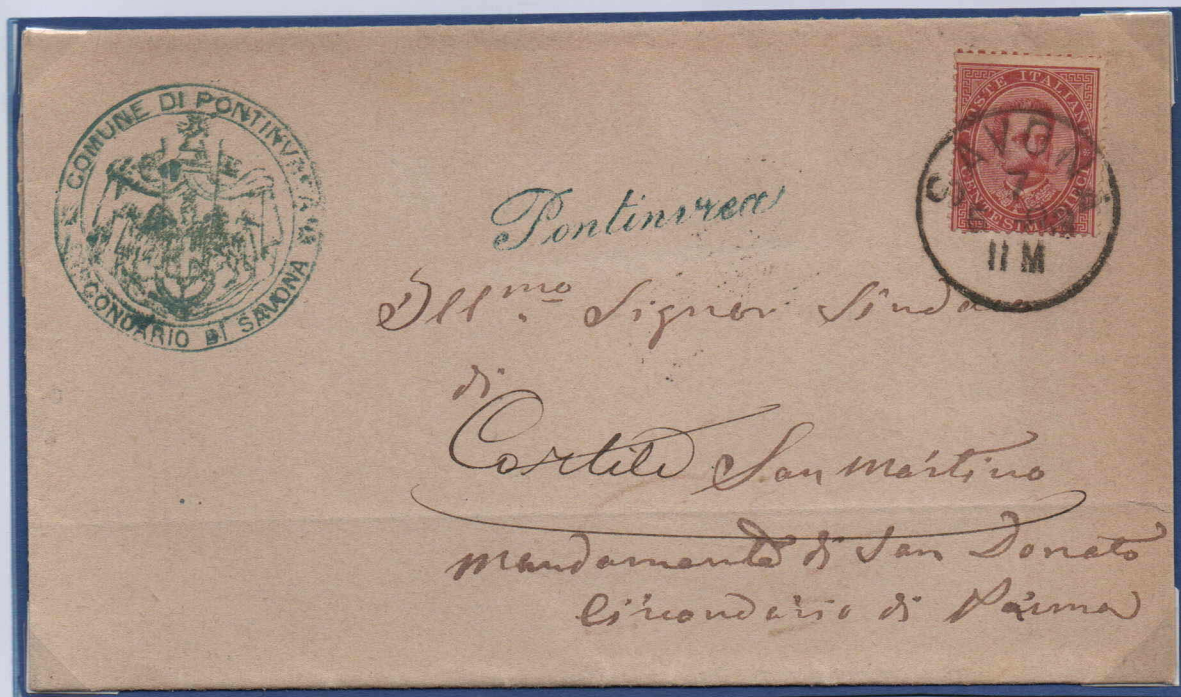 COMUNE DI PONTINVREA
CIRCONDARIO DI SAVONA
Pontinvrea
POSTE ITALIANE
CENTESIMI DIECI
SAVONA
7
11 M
Ill.mo Signor Sindaco
di
Cortile San Martino
Mandamento di San Donato
Circondario di Parma